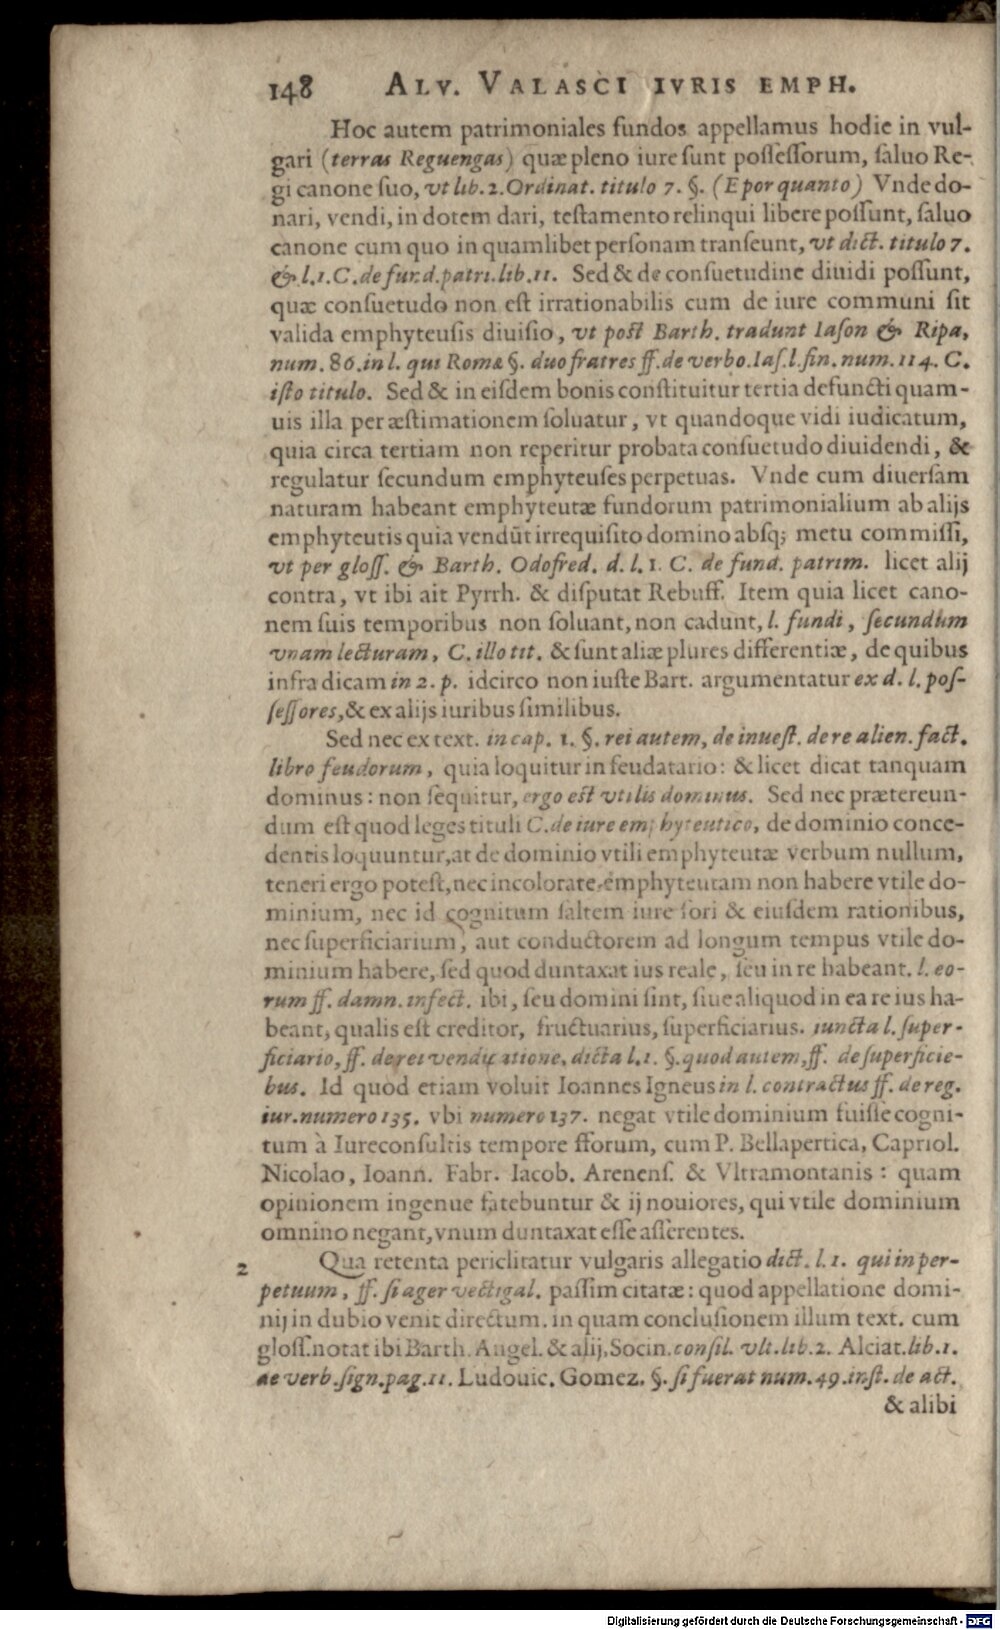 148 ALV. VALASCI IVRIS EMPH.
Hoc autem patrimoniales fundos appellamus hodie in vul-
gari (terras Reguengas) quæ pleno iure sunt possessorum, saluo Re-
gi canone suo, vt lib. 2. Ordinat. titulo 7. §. (E por quanto) Vnde do-
nari, vendi, in dotem dari, testamento relinqui libere possunt, saluo
canone cum quo in quamlibet personam transeunt, vt dict. titulo 7.
& l. 1. C. de fund. patri. lib. 11. Sed & de consuetudine diuidi possunt,
quæ consuetudo non est irrationabilis cum de iure communi sit
valida emphyteusis diuisio, vt post Barth. tradunt Iason & Ripa,
num. 86. in l. qui Romæ §. duo fratres ff. de verbo. Ias. l. fin. num. 114. C.
isto titulo. Sed & in eisdem bonis constituitur tertia defuncti quam-
uis illa per æstimationem soluatur, vt quandoque vidi iudicatum,
quia circa tertiam non reperitur probata consuetudo diuidendi, &
regulatur secundum emphyteuses perpetuas. Vnde cum diuersam
naturam habeant emphyteutæ fundorum patrimonialium ab alijs
emphyteutis quia vendūt irrequisito domino absq; metu commissi,
vt per gloss. & Barth. Odofred. d. l. 1. C. de fund. patrim. licet alij
contra, vt ibi ait Pyrrh. & disputat Rebuff. Item quia licet cano-
nem suis temporibus non soluant, non cadunt, l. fundi, secundum
vnam lecturam, C. illo tit. & sunt aliæ plures differentiæ, de quibus
infra dicam in 2. p. idcirco non iuste Bart. argumentatur ex d. l. pos-
sessores, & ex alijs iuribus similibus.
Sed nec ex text. in cap. 1. §. rei autem, de inuest. de re alien. fact.
libro feudorum, quia loquitur in feudatario: & licet dicat tanquam
dominus: non sequitur, ergo est vtilis dominus. Sed nec prætereun-
dum est quod leges tituli C. de iure emphyteutico, de dominio conce-
dentis loquuntur, at de dominio vtili emphyteutæ verbum nullum,
teneri ergo potest, nec incolorate, emphyteutam non habere vtile do-
minium, nec id cognitum saltem iure fori & eiusdem rationibus,
nec superficiarium, aut conductorem ad longum tempus vtile do-
minium habere, sed quod duntaxat ius reale, seu in re habeant. l. eo-
rum ff. damn. infect. ibi, seu domini sint, siue aliquod in ea re ius ha-
beant, qualis est creditor, fructuarius, superficiarius. iuncta l. super-
ficiario, ff. de rei vendicatione, dicta l. 1. §. quod autem, ff. de superficie-
bus. Id quod etiam voluit Ioannes Igneus in l. contractus ff. de reg.
iur. numero 135. vbi numero 137. negat vtile dominium fuisse cogni-
tum à Iureconsultis tempore fforum, cum P. Bellapertica, Capriol.
Nicolao, Ioann. Fabr. Iacob. Arenens. & Vltramontanis: quam
opinionem ingenue fatebuntur & ij nouiores, qui vtile dominium
omnino negant, vnum duntaxat esse asserentes.
2 Qua retenta periclitatur vulgaris allegatio dict. l. 1. qui in per-
petuum, ff. si ager vectigal. passim citatæ: quod appellatione domi-
nij in dubio venit directum. in quam conclusionem illum text. cum
gloss. notat ibi Barth. Angel. & alij, Socin. consil. vlt. lib. 2. Alciat. lib. 1.
de verb. sign. pag. 11. Ludouic. Gomez. §. si fuerat num. 49. inst. de act.
& alibi
Digitalisierung gefördert durch die Deutsche Forschungsgemeinschaft - DFG